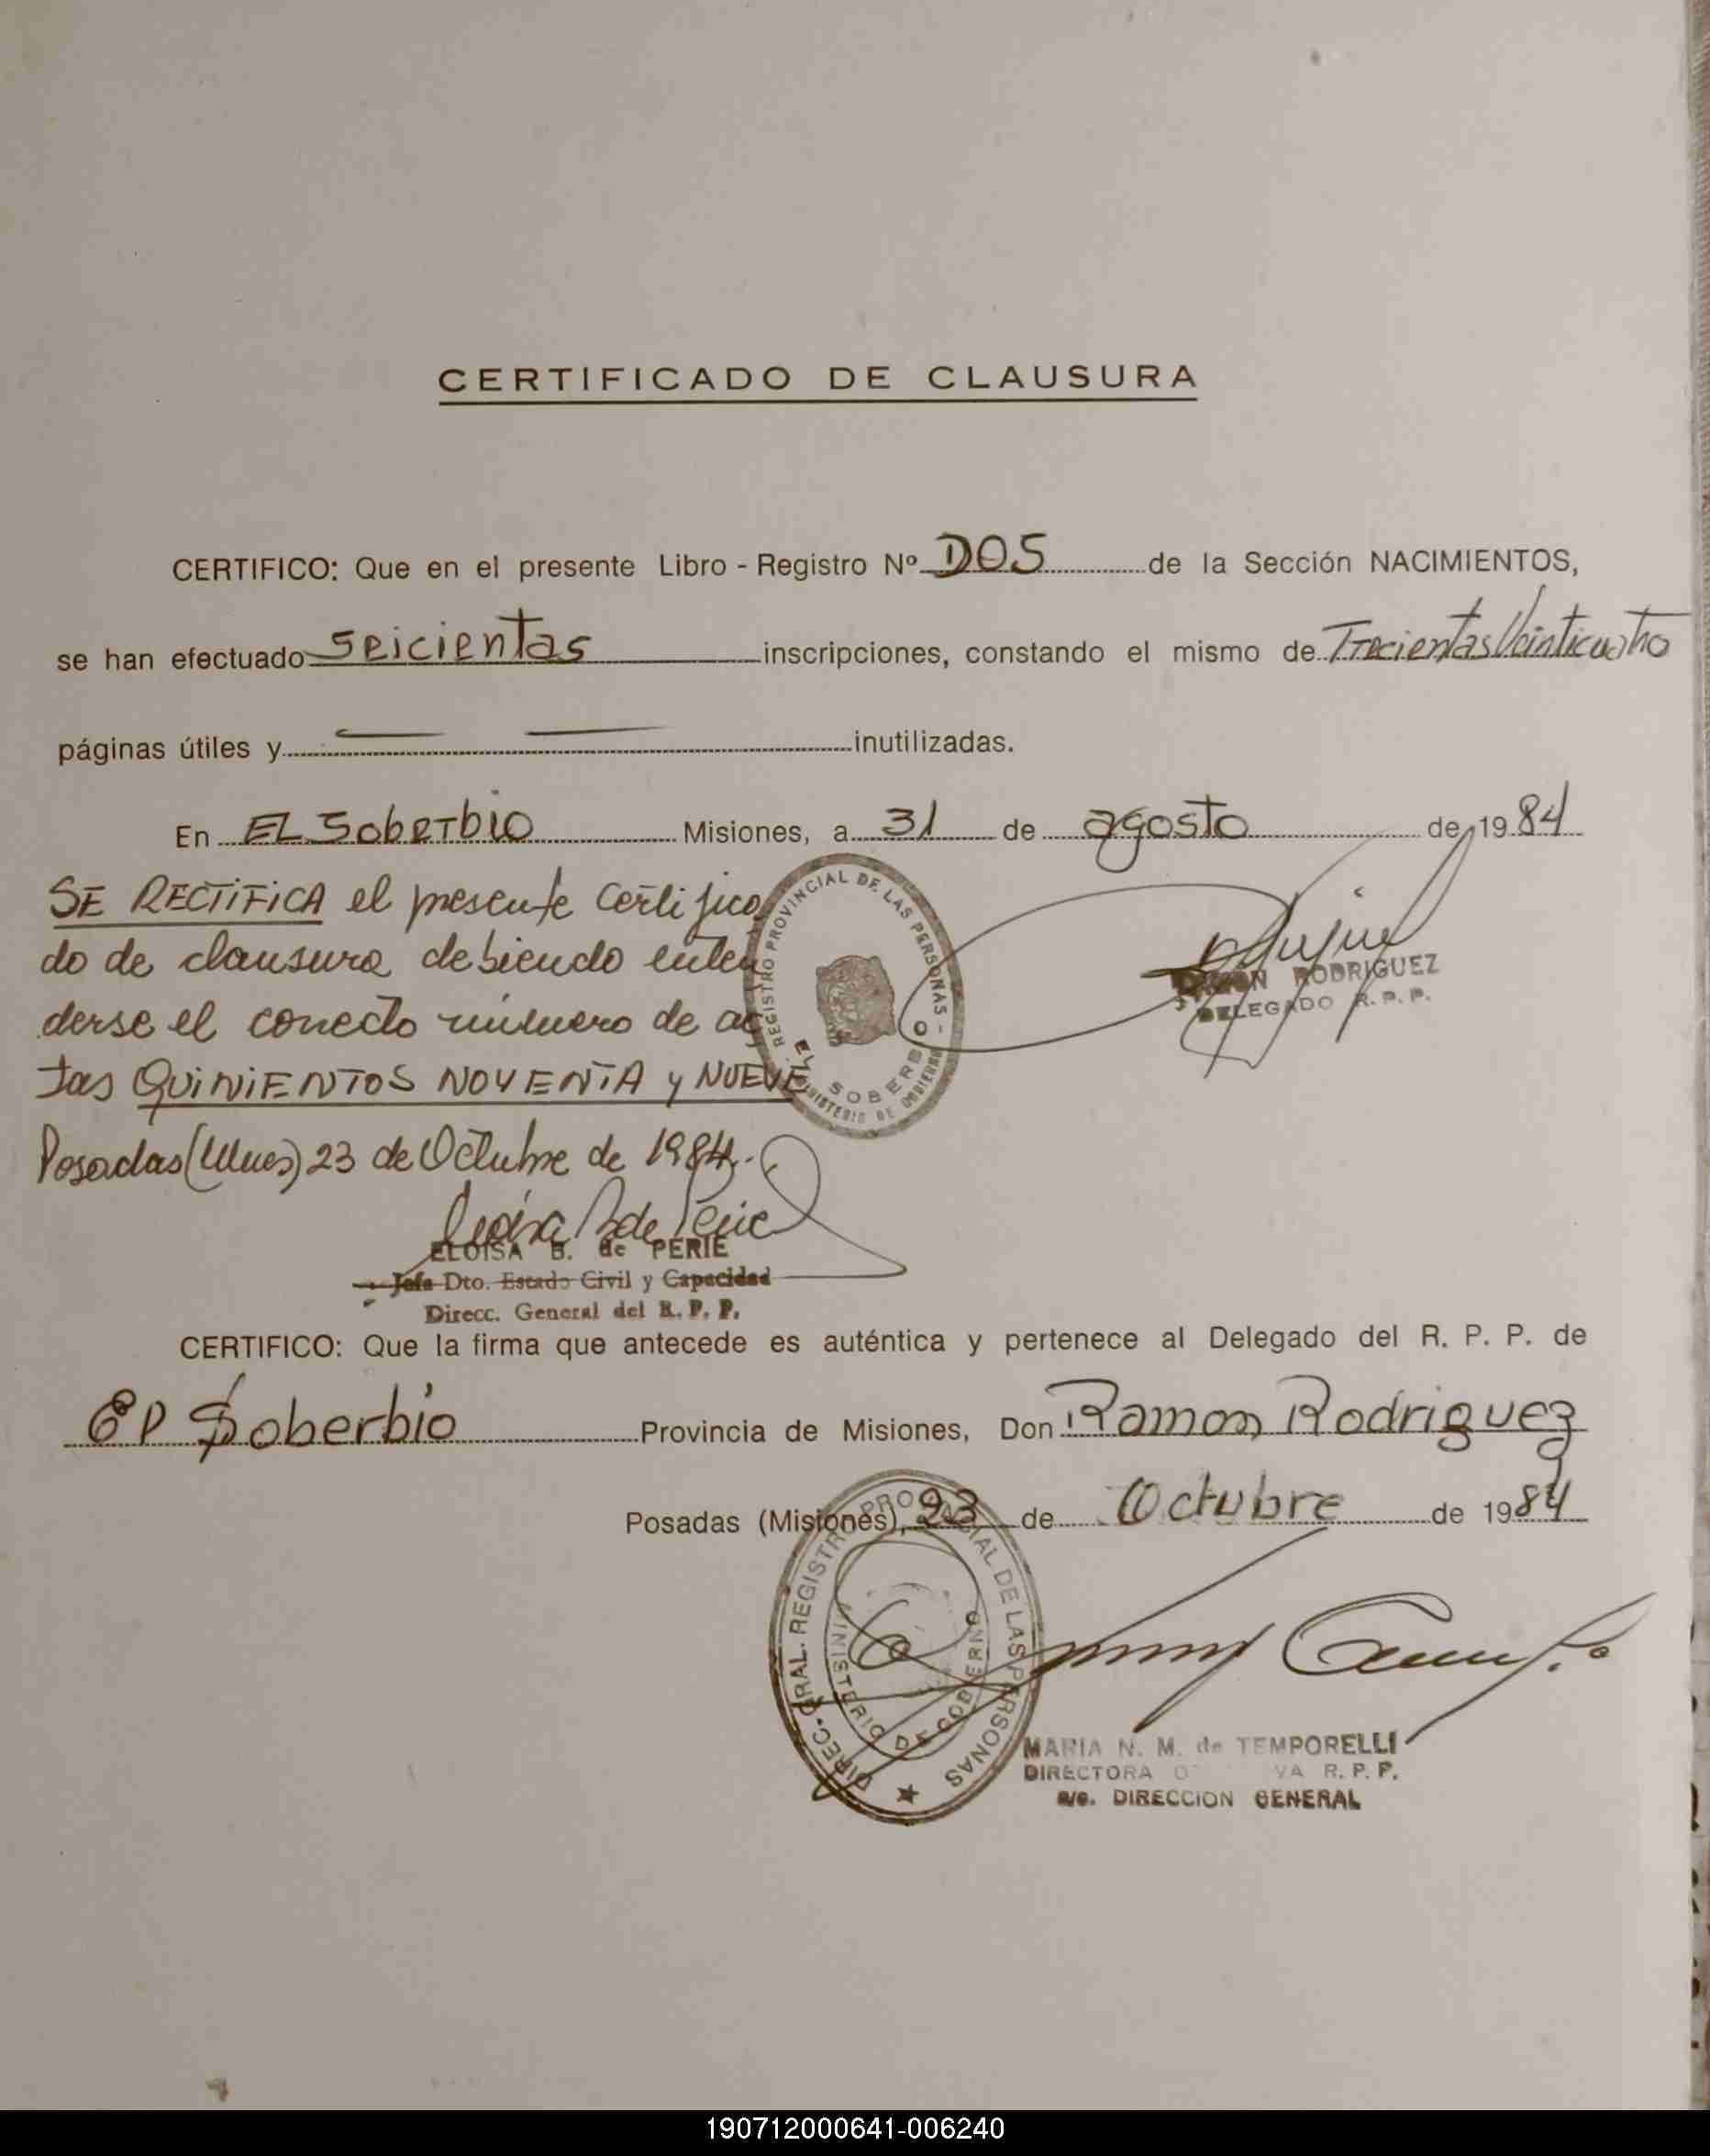 CERTIFICADO DE CLAUSURA
CERTIFICO: Que en el presente Libro - Registro Nº DOS de la Sección NACIMIENTOS,
se han efectuado seicientas inscripciones, constando el mismo de Trecientas Veinticuatro
páginas útiles y — — inutilizadas.
En EL Soberbio Misiones, a 31 de agosto de 1984
SE RECTIFICA el presente Certifica
do de clausura debiendo enten
derse el correcto número de ac
tas QUINIENTOS NOVENTA y NUEVE
Posadas (Mnes) 23 de Octubre de 1984.-
REGISTRO PROVINCIAL DE LAS PERSONAS -
EL SOBERBIO
MINISTERIO DE GOBIERNO
RAMON RODRIGUEZ
DELEGADO R. P. P.
ELOISA B. de PERIE
Jefa Dto. Estado Civil y Capacidad
Direcc. General del R. P. P.
CERTIFICO: Que la firma que antecede es auténtica y pertenece al Delegado del R. P. P. de
El Soberbio Provincia de Misiones, Don Ramon Rodriguez
Posadas (Misiones), 23 de Octubre de 1984
DIREC. GRAL. REGISTRO PROVINCIAL DE LAS PERSONAS
MINISTERIO DE GOBIERNO
MARIA N. M. de TEMPORELLI
DIRECTORA VA R. P. P.
a/c. DIRECCION GENERAL
190712000641-006240